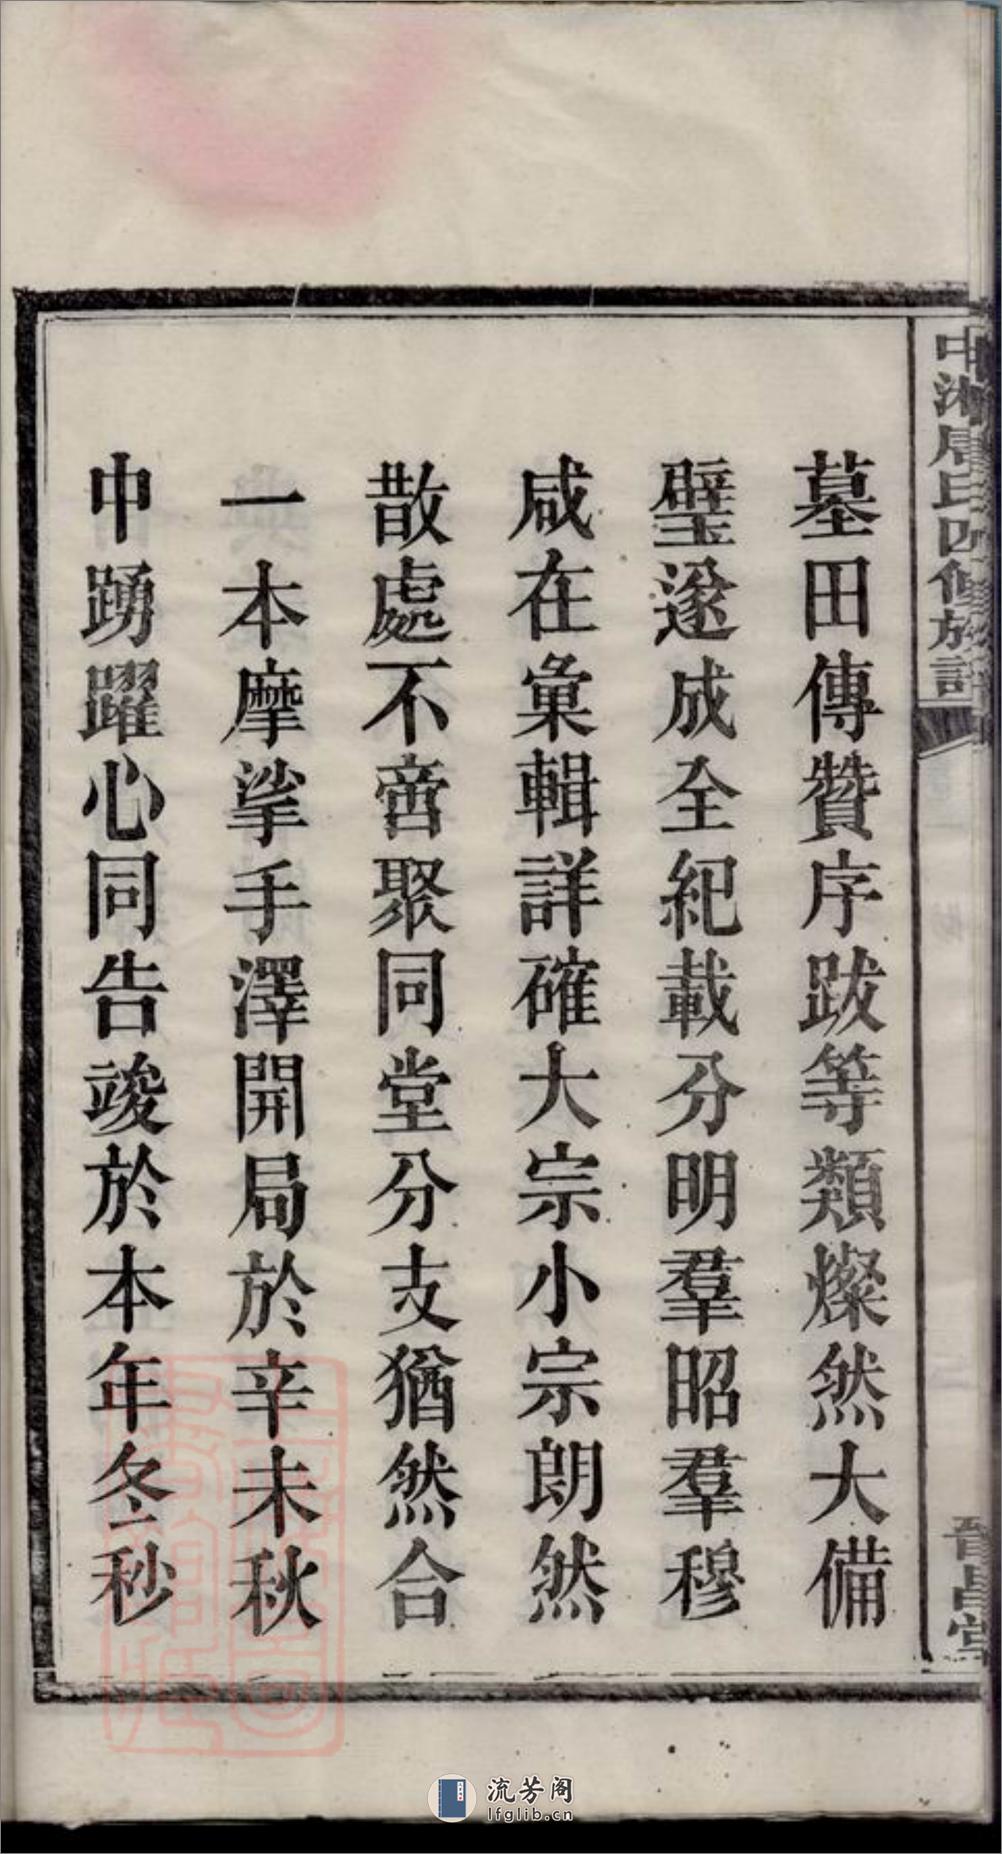 中湘唐氏四修族譜
晉昌堂
墓田傳贊序跋等類燦然大備
璧遂成全紀載分明羣昭羣穆
咸在彙輯詳確大宗小宗朗然
散處不啻聚同堂分支猶然合
一本摩挲手澤開局於辛未秋
中踴躍心同告竣於本年冬秒
流芳阁
lfglib.cn